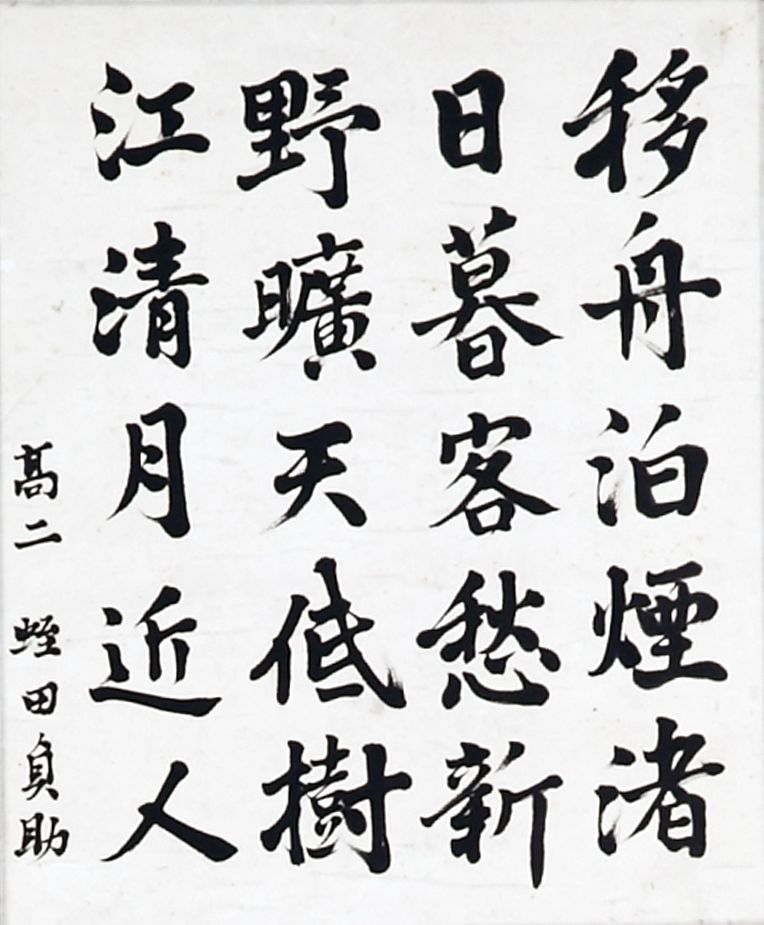 移舟泊煙渚
日暮客愁新
野曠天低樹
江清月近人
髙二 蛭田貞助